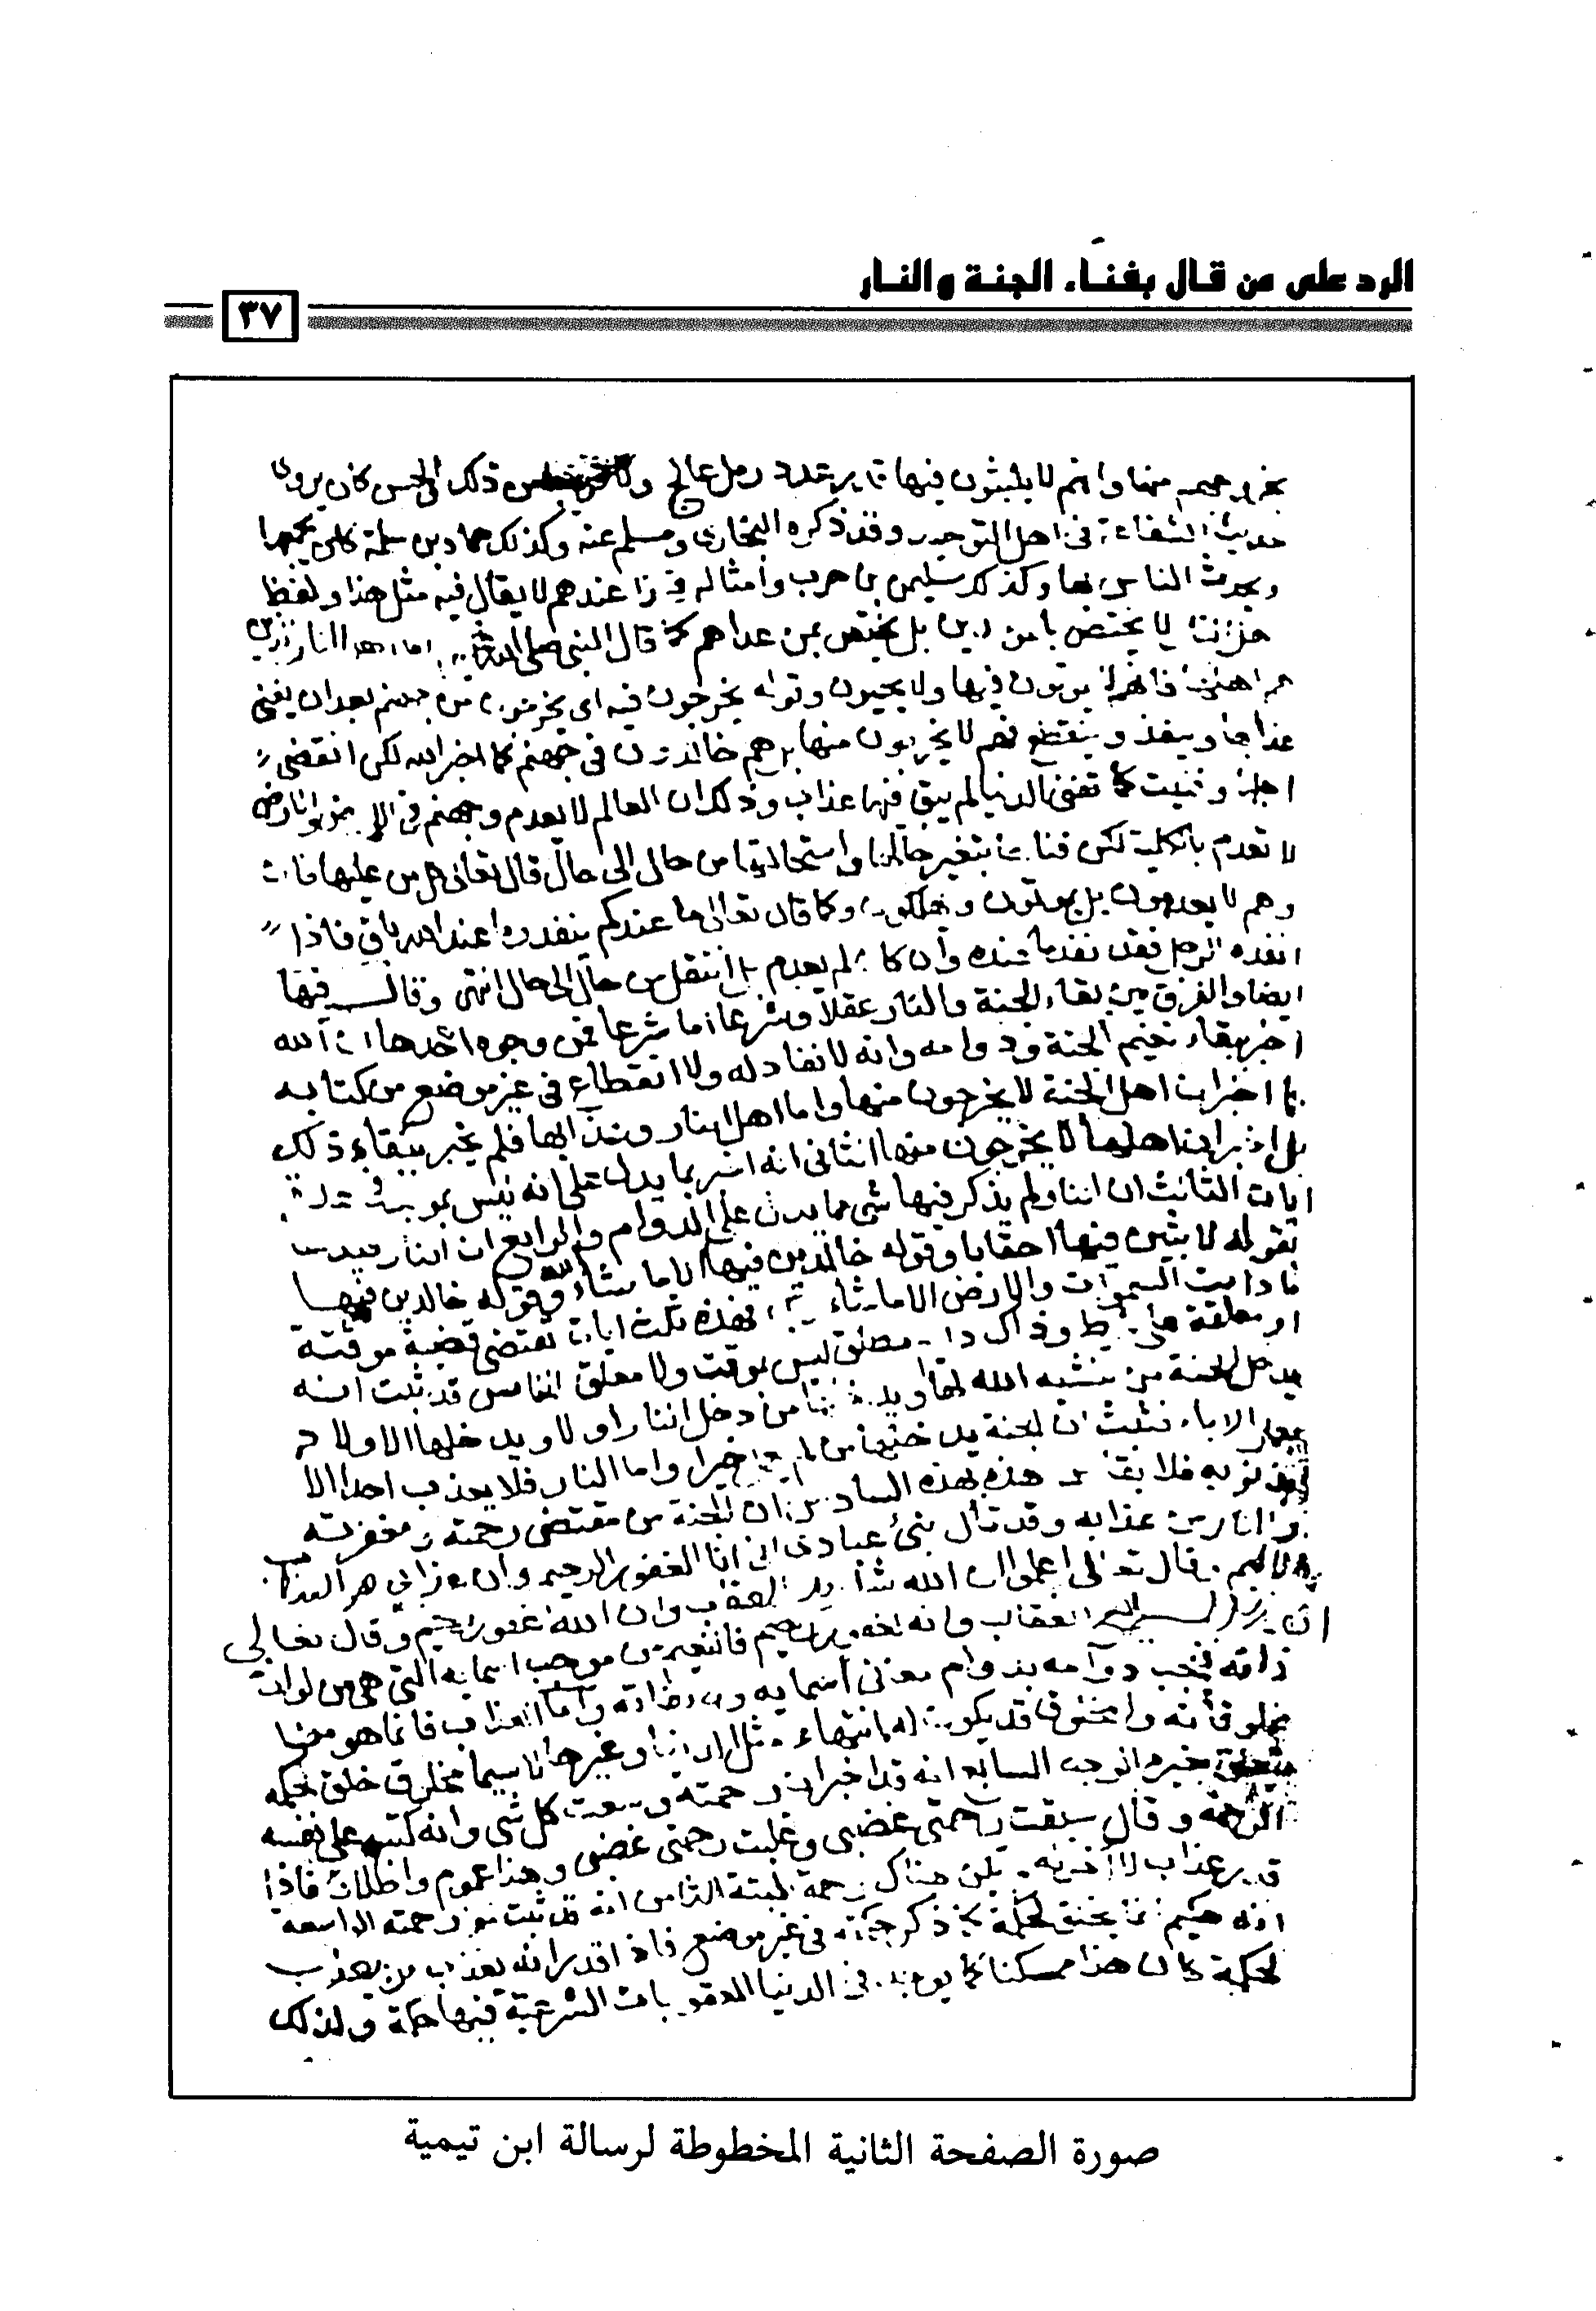 الرد على من قال بفناء الجنة والنار
٣٧
بخروجهم منها وانهم لا يلبثون فيها قدر عدد رمل عالج ذلك الحسن كان يروى
حديث الشفاعة فى اهل التوحيد وقد ذكره البخارى ومسلم عنه وكذلك حماد بن سلمة يجمعها
ويحدث الناس بها وكذلك سليمن بن حرب وامثاله عندهم لا يقال فيه مثل هذا ولفظ
لا يختص بل يختص بمن عداهم كما قال النبى صلى الله اما اهل النار الذين
هم اهلها فانهم لا يموتون فيها ولا يحيون وقوله يخرجون فيه اى يخرجون من جهنم بعد ان يفنى
عذابها وينفذ وينقطع فهم لا يخرجون منها بل هم خالدون فى جهنم كما اخبر الله لكن انقضى
اجلها وفنيت كما تفنى الدنيا لم يبق فيها عذاب وذلك ان العالم لا يعدم وجهنم فى الارض
لا تعدم بالكلية لكن فناؤها بتغير حالها واستحالتها من حال الى حال قال تعالى كل من عليها فان
وهم لا يعدمون بل يموتون ويهلكون وكما قال تعالى ما عندكم ينفد وما عند الله باق فاذا
انفده الرجل فقد نفد ما عنده وان كان لم يعدم بل انتقل من حال الى حال انتهى وقال فيها
ايضا والفرق بين بقاء الجنة والنار عقلا وشرعا اما شرعا فمن وجوه احدها ان الله
اخبر ببقاء نعيم الجنة ودوامه وانه لا نفاد له ولا انقطاع فى غير موضع من كتابه
كما اخبر ان اهل الجنة لا يخرجون منها واما اهل النار وعذابها فلم يخبر ببقاء ذلك
بل اخبر ان اهلها لا يخرجون منها الثانى انه اخبر بما يدل على انه ليس بموبد فى عدة
ايات الثالث ان النار لم يذكر فيها شى مما يدل على الدوام والرابع ان النار قيدت
بقوله لابثين فيها احقابا وقوله خالدين فيها الا ما شاء الله وقوله خالدين فيها
ما دامت السموات والارض الا ما شاء فهذه ثلث ايات تقتضى قضية موقتة
او معلقة على شرط وذاك مطلق ليس بموقت ولا معلق الخامس قد ثبت انه
يدخل الجنة من ينشيه الله لها من دخل النار اولا ويدخلها الاولاد
بعمل الاباء فثبت ان الجنة يدخلها من لم يعمل خيرا واما النار فلا يعذب احدا الا
بذنوبه فلا يقاس هذه بهذه السادس ان الجنة من مقتضى رحمته ومغفرته
والنار من عذابه وقد قال نبئ عبادى انى انا الغفور الرحيم وان عذابى هو العذاب
الاليم وقال تعالى اعلموا ان الله شديد العقاب وان الله غفور رحيم وقال تعالى
ان ربك لسريع العقاب وانه لغفور رحيم فالنعيم من موجب اسمايه التى هى من لوازم
ذاته فيجب دوامه بدوام معانى اسمايه وصفاته واما العذاب فانما هو من
مخلوقاته والمخلوق قد يكون له انتهاء مثل الدنيا وغيرها لا سيما مخلوق خلق لحكمة
يتعلق بغيره الوجه السابع انه قد اخبر ان رحمته وسعت كل شى وانه كتب على نفسه
الرحمة وقال سبقت رحمتى غضبى وغلبت رحمتى غضبى وهذا عموم واطلاق فاذا
قدر عذاب لا اخر له لم يكن هناك رحمة البتة الثامن انه قد ثبت مع رحمته الواسعة
انه حكيم انما يخلق لحكمة كما ذكر حكمته فى غير موضع فاذا قدر انه يعذب من يعذب
لحكمة كان هذا ممكنا كما يوجد فى الدنيا العقوبات الشرعية فيها حكمة ولذلك
صورة الصفحة الثانية المخطوطة لرسالة ابن تيمية